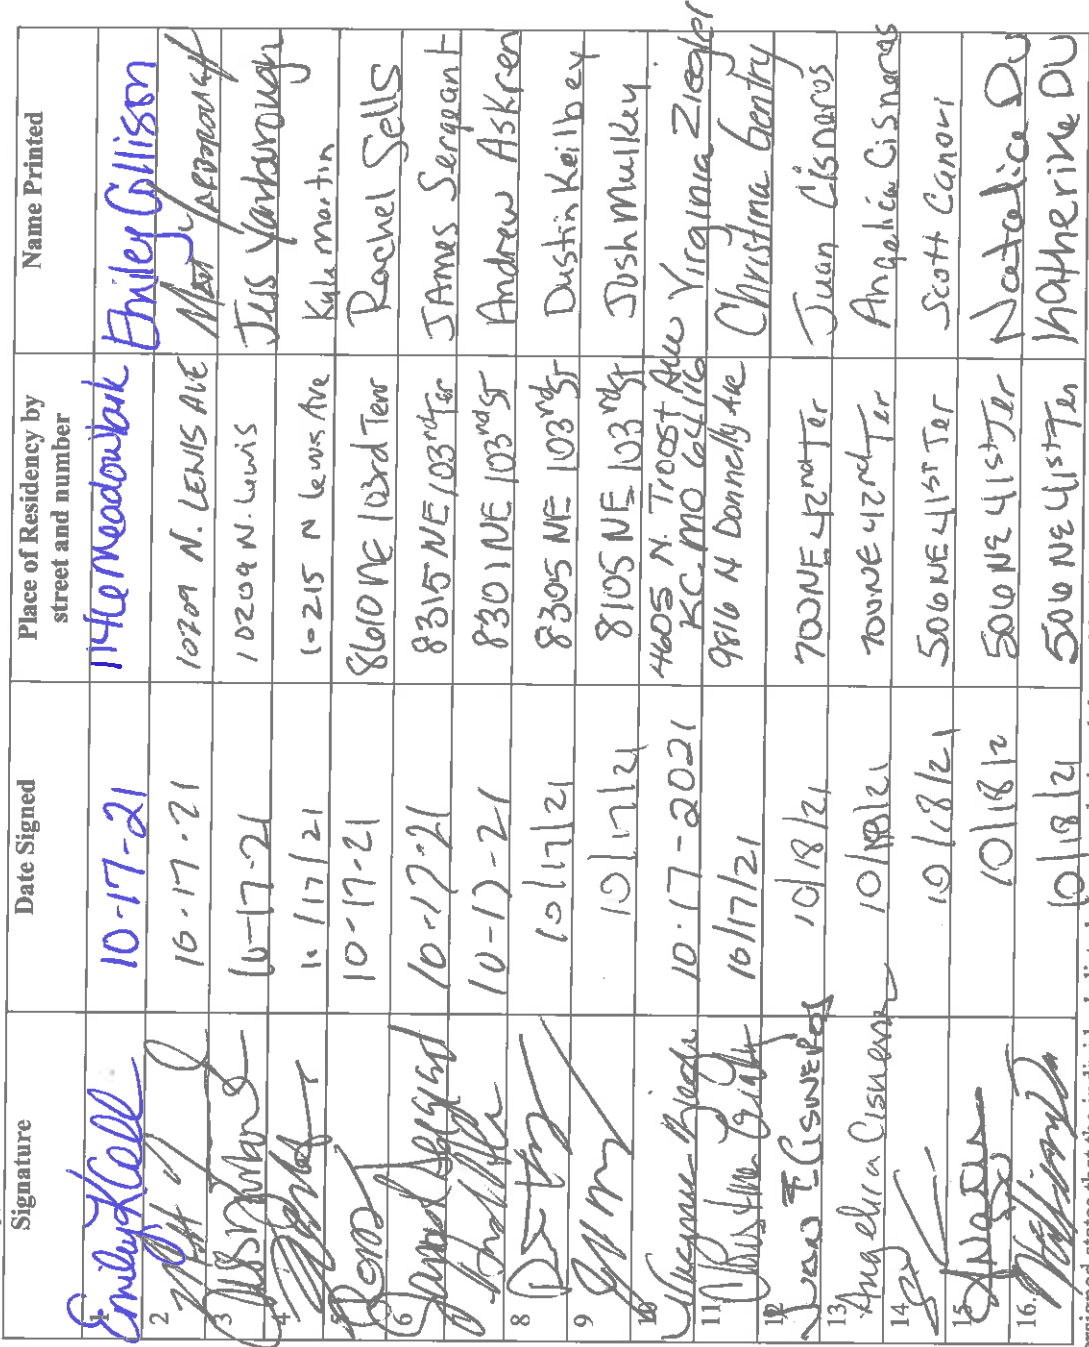 Signature Date Signed Place of Residency by street and number Name Printed
1 10-17-21 1146 Meadowlark Emiley Collison
2 10-17-21 10209 N. LEWIS AVE
3 10-17-21 10209 N. Lewis Jess Yarbrough
4 10/17/21 10215 N Lewis Ave Kyle Martin
5 10-17-21 8610 NE 103rd Terr Rachel Sells
6 10-17-21 8315 NE 103rd Ter JAmes Sergeant
10-17-21 8301 NE 103rd ST Andrew Askren
8 10/17/21 8305 NE 103rd ST Dustin Keilbey
9 10/17/21 8105 NE 103rd ST Josh Mulkey
10 10-17-2021 4605 N. Troost Ave KC, MO 64116 Virginia Ziegler
11 Christina Gentry 10/17/21 9816 N Donnelly Ave Christina Gentry
12 Juan F CISNEROS 10/18/21 700 NE 42nd Ter Juan Cisneros
13 Angelica Cisneros 10/18/21 700 NE 42nd Ter Angelica Cisneros
14 10/18/21 506 NE 41st Ter Scott Canori
15 10/18/2 506 NE 41st Ter Natalice Du
16. 10/18/21 506 NE 41st Ter Katherine DU
that the individuals listed